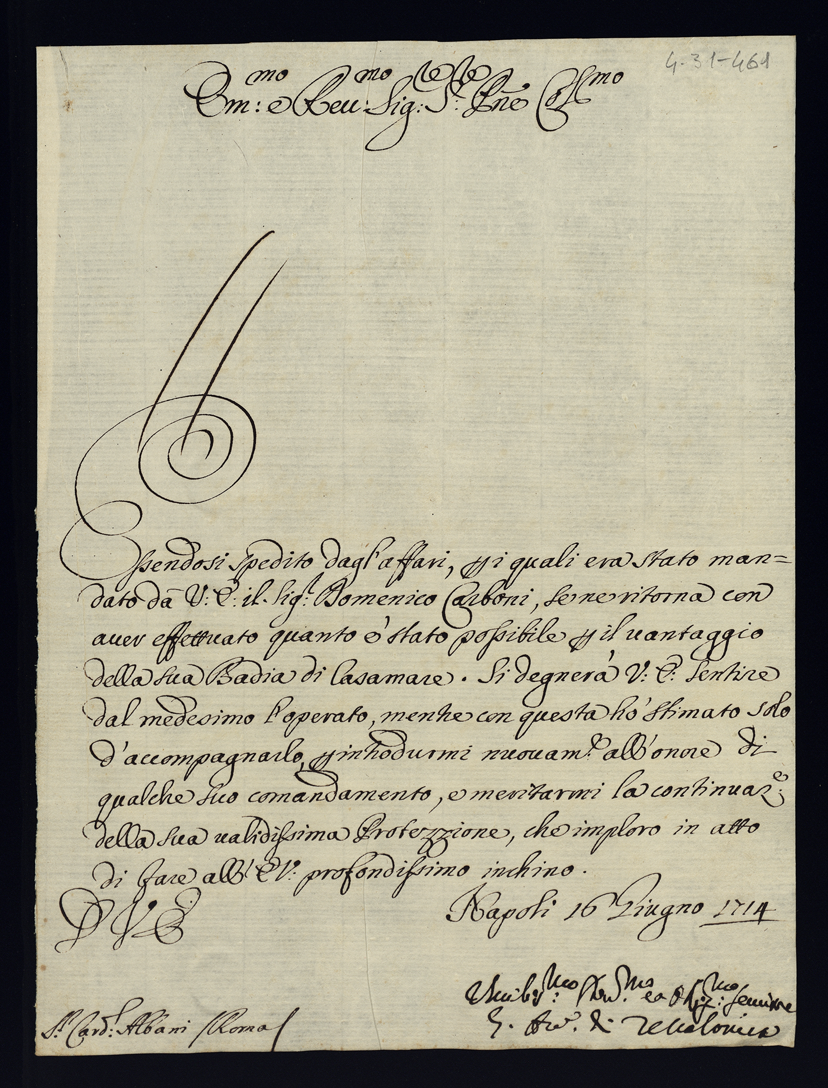 4-31-461
Em:mo e Reu:mo Sig:re S:re Pne Col:mo
Essendosi spedito dagl'affari, p i quali era stato man=
dato da V: E: il Sig:r Domenico Carboni, se ne ritorna con
auer effettuato quanto è stato possibile p il uantaggio
della sua Badia di Casamare. Si degnerà V: E: sentire
dal medesimo l'operato, mentre con questa hò stimato solo
d'accompagnarlo, p introdurmi nuouam:te all'onore di
qualche suo comandamento, e meritarmi la continuaz:e
della sua ualidissima Protezzione, che imploro in atto
di fare all'E V: profondissimo inchino.
D V E
Napoli 16 Giugno 1714
Umilis:mo Deu:mo ed Oblig:mo seruitore
S:r Card:l Albani / Roma /